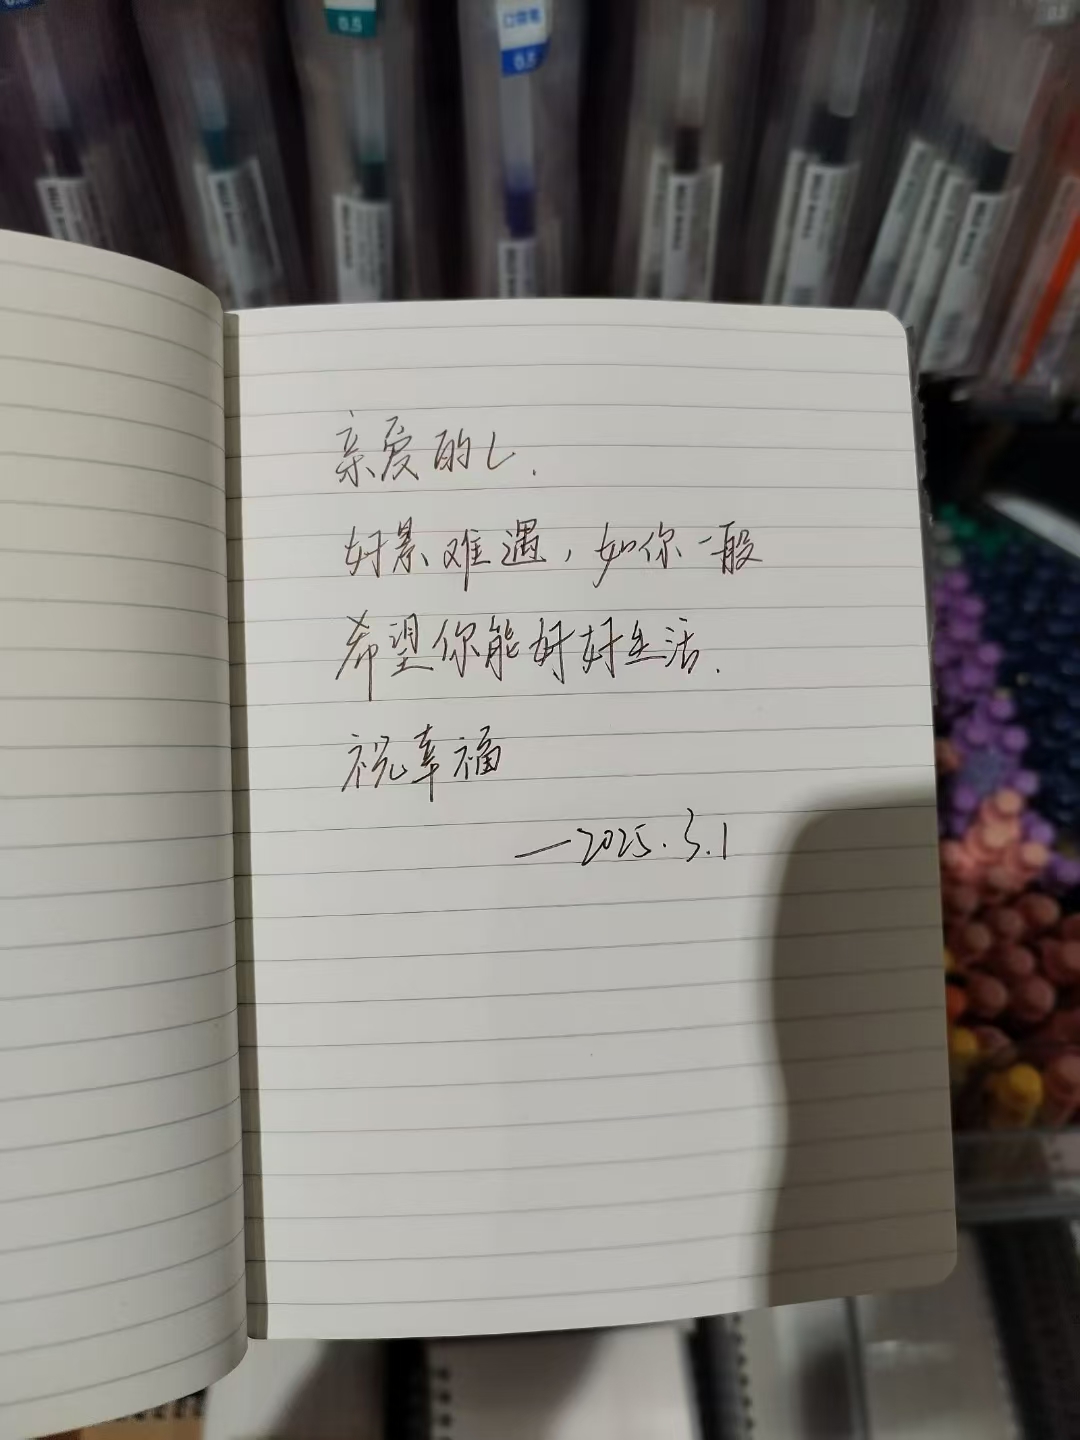 0.5
口袋笔
0.5
亲爱的L.
好景难遇，如你一般
希望你能好好生活.
祝幸福
—2025.3.1